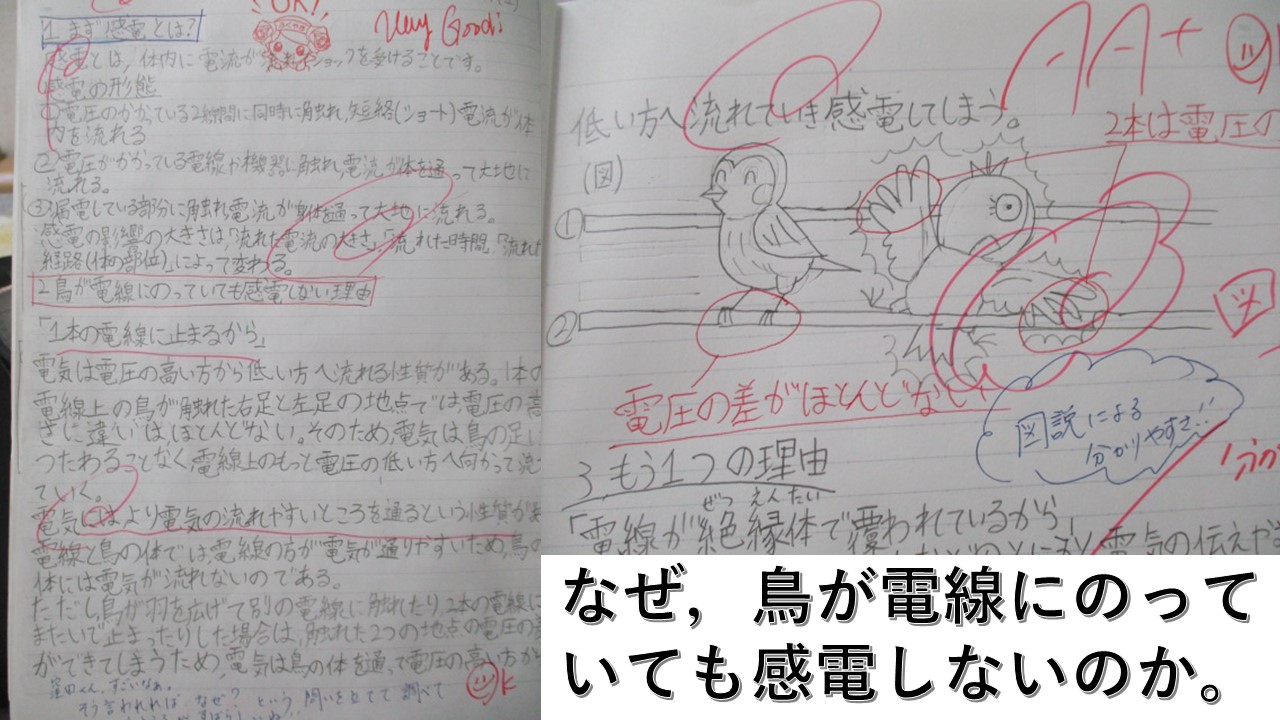 OK!
Very Good!
1. まず感電とは?
感電とは、体内に電流が ショックを受けることです。
感電の形態
①電圧のかかっている2線間に同時に触れ、短絡(ショート)電流が体
内を流れる
②電圧がかかっている電線や機器に触れ、電流が体を通って大地に
流れる。
③漏電している部分に触れ、電流が身体を通って大地に流れる。
感電の影響の大きさは、「流れた電流の大きさ」、「流れた時間」、「流れた
経路(体の部位)」によって変わる。
2.鳥が電線にのっていても感電しない理由
「1本の電線に止まるから」
電気は電圧の高い方から低い方へ流れる性質がある。1本の
電線上の鳥が触れた右足と左足の地点では、電圧の高
さに違いはほとんどない。そのため、電気は鳥の足に
つたわることなく電線上のもっと電圧の低い方へ向かって流
ていく。
電気にはより電気の流れやすいところを通るという性質があ
電線と鳥の体では、電線の方が電気が通りやすいため、鳥の
体には電気が流れないのである。
ただし鳥が羽を広げて別の電線に触れたり、2本の電線に
またいで止まったりした場合は、触れた2つの地点の電圧の差
ができてしまうため、電気は鳥の体を通って電圧の高い方から
すごいなぁ。
そう言われれば なぜ? という 問いを立てて 調べて
OK
AA+
低い方へ流れていき感電してしまう。
2本は電圧の
(図)
①
②
図
電圧の差がほとんどない
図説による
分かりやすさ!!
3 もう1つの理由
ぜつ えんたい
「電線が絶縁体で覆われているから」
電気の伝えや
なぜ，鳥が電線にのって
いても感電しないのか。